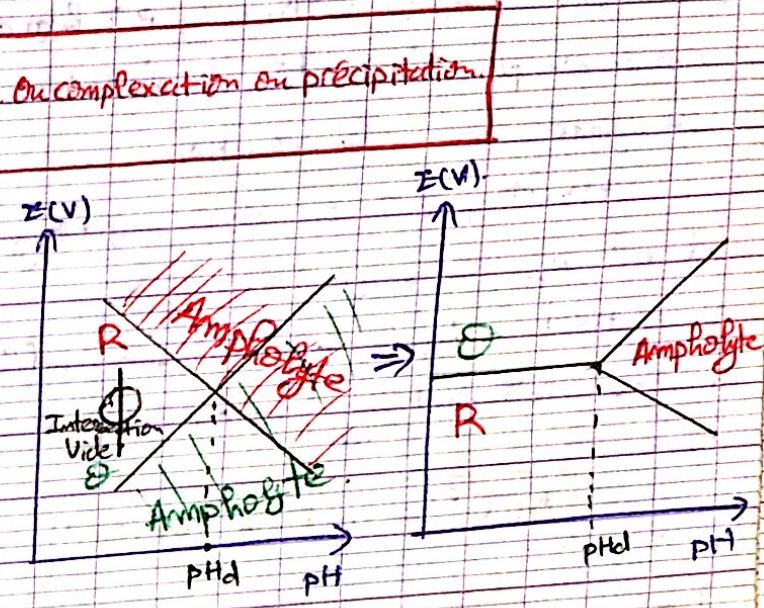 Ou complexation ou précipitation.
E(V)
E(V)
R
Ampholyte
Intersection
Vide
Ө
Ampholyte
pHd
pH
⇒
Ө
R
Ampholyte
pHd
pH